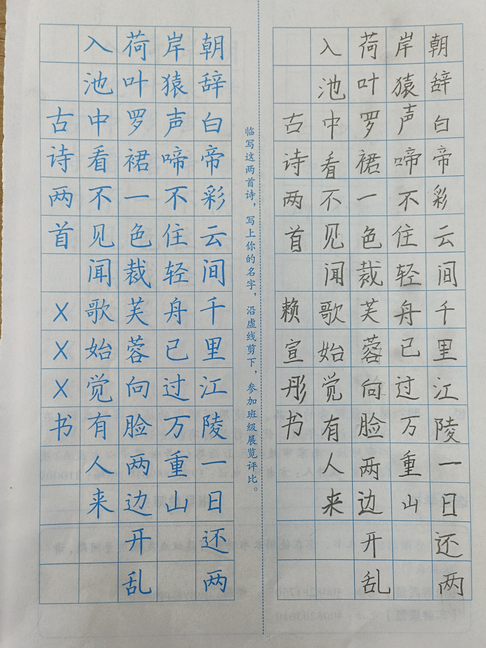 朝辞白帝彩云间千里江陵一日还两
岸猿声啼不住轻舟已过万重山
荷叶罗裙一色裁芙蓉向脸两边开乱
入池中看不见闻歌始觉有人来
古诗两首 赖宣彤书
临写这两首诗，写上你的名字，沿虚线剪下，参加班级展览评比。
朝辞白帝彩云间千里江陵一日还两
岸猿声啼不住轻舟已过万重山
荷叶罗裙一色裁芙蓉向脸两边开乱
入池中看不见闻歌始觉有人来
古诗两首 XXX书